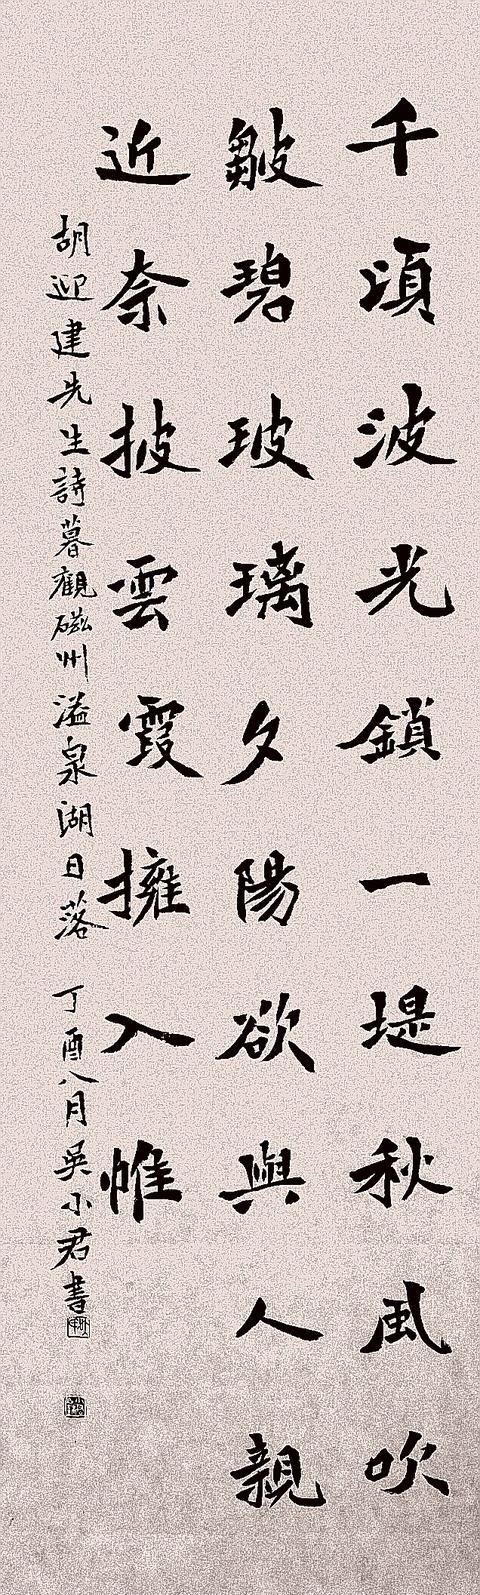 千頃波光鎖一堤秋風吹
皺碧玻璃夕陽欲與人親
近奈披雲霞擁入帷
胡迎建先生詩暮觀磁州溢泉湖日落 丁酉八月吳小君書